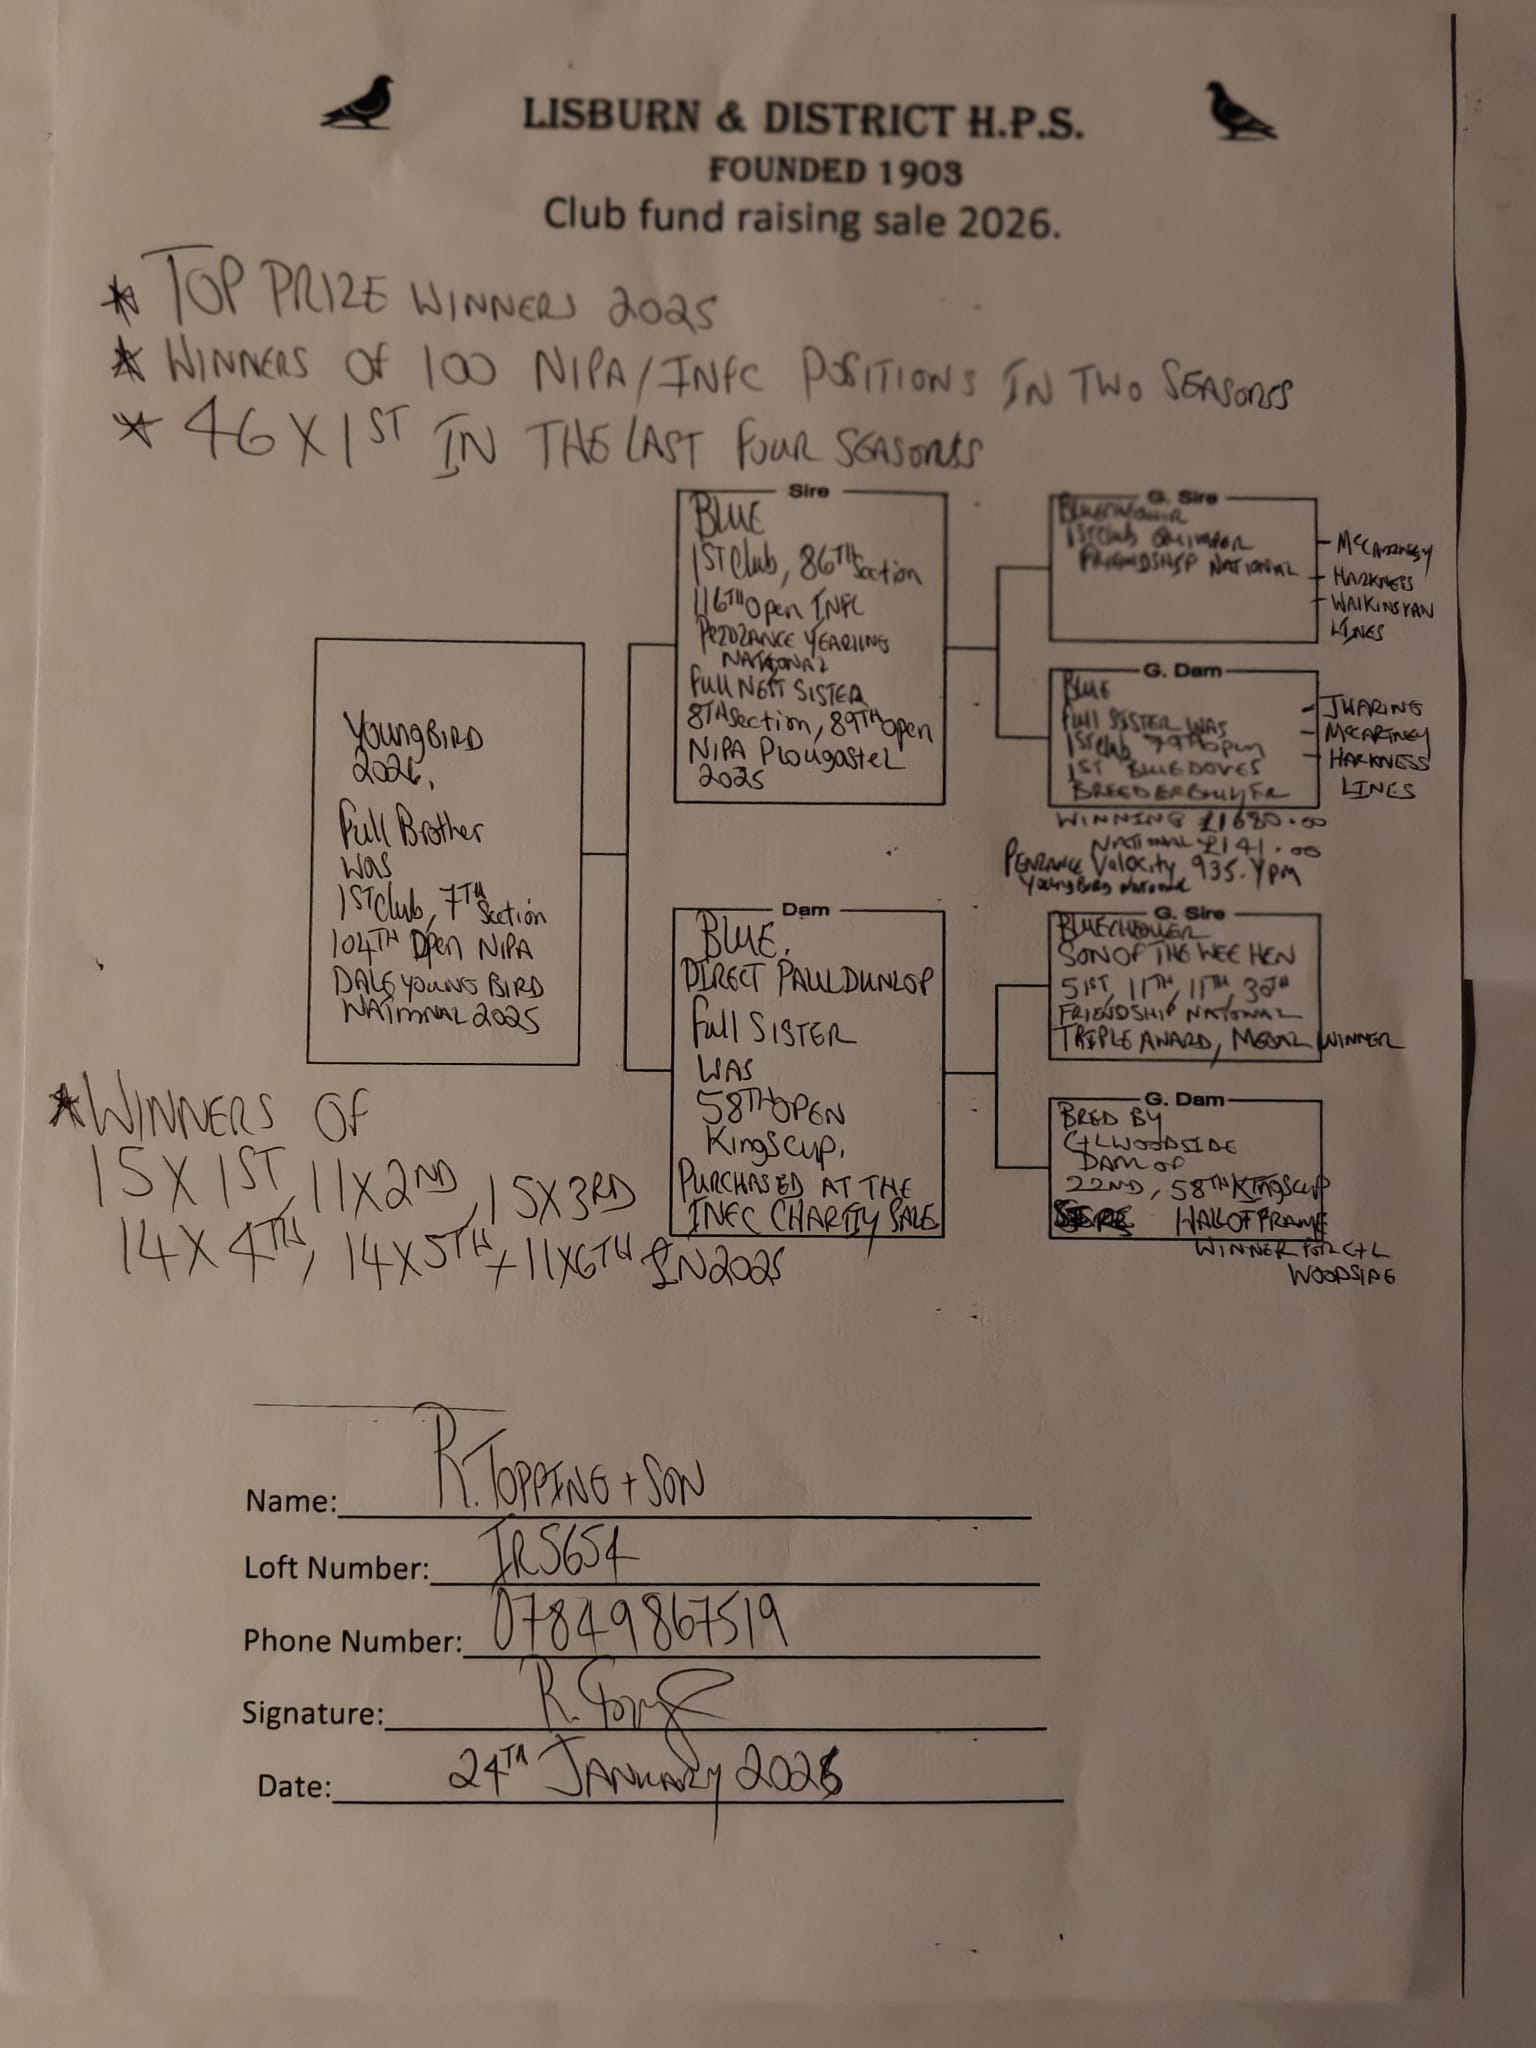 LISBURN & DISTRICT H.P.S.
FOUNDED 1903
Club fund raising sale 2026.
* TOP PRIZE WINNERS 2025
* WINNERS OF 100 NIPA/INFC POSITIONS IN TWO SEASONS
* 46 X 1ST IN THE LAST FOUR SEASONS
Young BIRD
2026,
Full Brother
WAS
1ST Club, 7TH Section
104TH Open NIPA
DALE YOUNG BIRD
NATIONAL 2025
Sire
BLUE
1ST Club, 86TH Section
116TH Open INFC
YEARLING
NATIONAL
Full NEST SISTER
8TH Section, 89TH Open
NIPA Plougastel
2025
Dam
BLUE,
DIRECT PAUL DUNLOP
Full SISTER
WAS
58TH OPEN
Kings Cup,
PURCHASED AT THE
INFC CHARITY SALE
G. Sire
1ST Club QUIMPER
FRIENDSHIP NATIONAL
McCARTNEY
HARKNESS
LINES
G. Dam
BLUE
Full SISTER WAS
1ST Club 79TH Open
1ST BLUE DOVES
BREEDER BUYER
WINNING £1680.00
NATIONAL £141.00
PENZANCE Velocity 935. Ypm
Young Bird National
J WARING
McCARTNEY
HARKNESS
LINES
G. Sire
SON OF THE WEE HEN
51ST, 11TH, 11TH, 30TH
FRIENDSHIP NATIONAL
TRIPLE AWARD, MEDAL WINNER
G. Dam
BRED BY
C+L WOODSIDE
DAM OF
22ND, 58TH KINGS CUP
HALL OF FRAME
WINNER FOR C+L
WOODSIDE
* WINNERS OF
15 X 1ST, 11 X 2ND, 15 X 3RD
14 X 4TH, 14 X 5TH + 11 X 6TH IN 2025
Name: R. TOPPING + SON
Loft Number: IR5654
Phone Number: 07849867519
Signature: R.
Date: 24TH JANUARY 2026